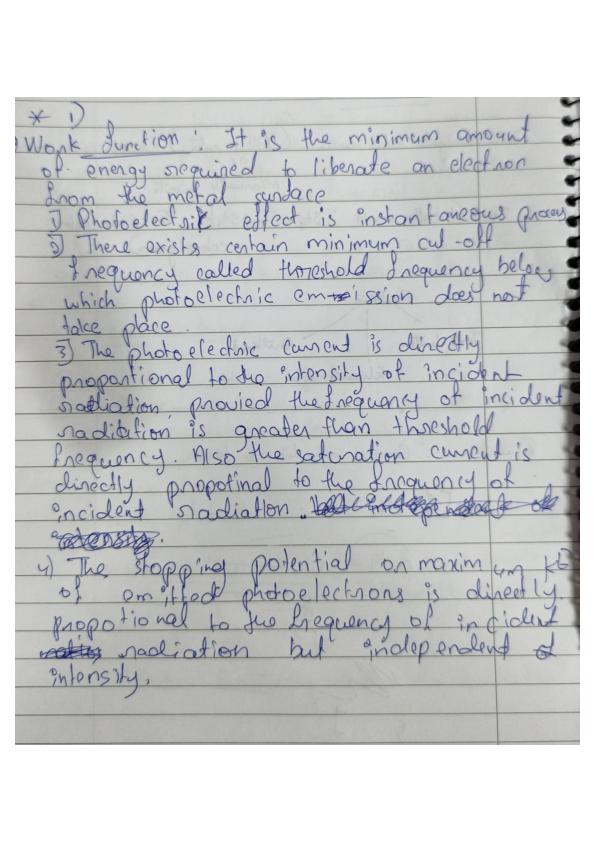 * 1)
Work function : It is the minimum amount
of energy required to liberate an electron
from the metal surface
1) Photoelectric effect is instantaneous process
2) There exists certain minimum cut-off
frequency called threshold frequency below
which photoelectric emission does not
take place.
3) The photoelectric current is directly
proportional to the intensity of incident
radiation, provied the frequency of incident
radiation is greater than threshold
frequency. Also the saturation current is
directly propotinal to the frequency of
incident radiation.
4) The stopping potential or maximum KE
of emitted photoelectrons is directly
propotional to the frequency of incident
radiation but independent of
intensity.